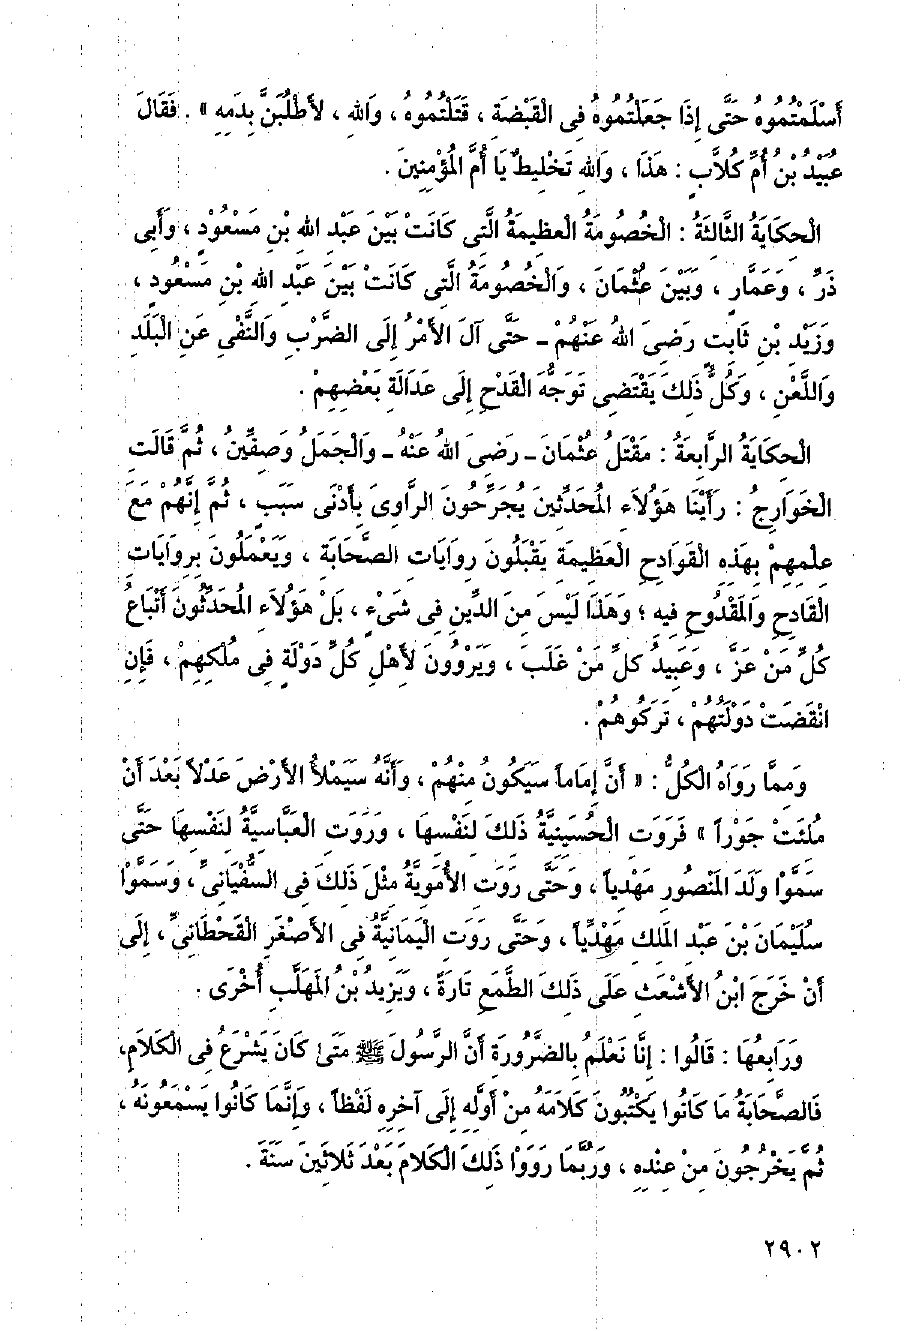 أَسْلَمْتُمُوهُ حَتَّى إِذَا جَعَلْتُمُوهُ فِى الْقَبْضَةِ ، قَتَلْتُمُوهُ ، وَاللهِ ، لأَطْلُبَنَّ بِدَمِهِ » . فَقَالَ
عُبَيْدُ بْنُ أُمِّ كُلاَّبٍ : هَذَا ، وَاللهِ تَخْلِيطٌ يَا أُمَّ الْمُؤْمِنِينَ .
الْحِكَايَةُ الثَّالِثَةُ : الْخُصُومَةُ الْعَظِيمَةُ الَّتِى كَانَتْ بَيْنَ عَبْدِ اللهِ بْنِ مَسْعُودٍ ، وَأَبِى
ذَرٍّ ، وَعَمَّارٍ ، وَبَيْنَ عُثْمَانَ ، وَالْخُصُومَةُ الَّتِى كَانَتْ بَيْنَ عَبْدِ اللهِ بْنِ مَسْعُودٍ ،
وَزَيْدِ بْنِ ثَابِتٍ رَضِىَ اللهُ عَنْهُمْ ـ حَتَّى آلَ الأَمْرُ إِلَى الضَّرْبِ وَالنَّفْىِ عَنِ الْبَلَدِ
وَاللَّعْنِ ، وَكُلُّ ذَلِكَ يَقْتَضِى تَوَجُّهَ الْقَدْحِ إِلَى عَدَالَةِ بَعْضِهِمْ .
الْحِكَايَةُ الرَّابِعَةُ : مَقْتَلُ عُثْمَانَ ـ رَضِىَ اللهُ عَنْهُ ـ وَالْجَمَلُ وَصِفِّينُ ، ثُمَّ قَالَتِ
الْخَوَارِجُ : رَأَيْنَا هَؤُلاَءِ الْمُحَدِّثِينَ يُجَرِّحُونَ الرَّاوِىَ بِأَدْنَى سَبَبٍ ، ثُمَّ إِنَّهُمْ مَعَ
عِلْمِهِمْ بِهَذِهِ الْقَوَادِحِ الْعَظِيمَةِ يَقْبَلُونَ رِوَايَاتِ الصَّحَابَةِ ، وَيَعْمَلُونَ بِرِوَايَاتِ
الْقَادِحِ وَالْمَقْدُوحِ فِيهِ ؛ وَهَذَا لَيْسَ مِنَ الدِّينِ فِى شَىْءٍ ، بَلْ هَؤُلاَءِ الْمُحَدِّثُونَ أَتْبَاعُ
كُلِّ مَنْ عَزَّ ، وَعَبِيدُ كُلِّ مَنْ غَلَبَ ، وَيَرْوُونَ لأَهْلِ كُلِّ دَوْلَةٍ فِى مُلْكِهِمْ ، فَإِنِ
انْقَضَتْ دَوْلَتُهُمْ ، تَرَكُوهُمْ .
وَمِمَّا رَوَاهُ الْكُلُّ : « أَنَّ إِمَاماً سَيَكُونُ مِنْهُمْ ، وَأَنَّهُ سَيَمْلأُ الأَرْضَ عَدْلاً بَعْدَ أَنْ
مُلِئَتْ جَوْراً » فَرَوَتِ الْحُسَيْنِيَّةُ ذَلِكَ لِنَفْسِهَا ، وَرَوَتِ الْعَبَّاسِيَّةُ لِنَفْسِهَا حَتَّى
سَمَّوْا وَلَدَ الْمَنْصُورِ مَهْدِياً ، وَحَتَّى رَوَتِ الأُمَوِيَّةُ مِثْلَ ذَلِكَ فِى السُّفْيَانِىِّ ، وَسَمَّوْا
سُلَيْمَانَ بْنَ عَبْدِ الْمَلِكِ مَهْدِيّاً ، وَحَتَّى رَوَتِ الْيَمَانِيَّةُ فِى الأَصْغَرِ الْقَحْطَانِىِّ ، إِلَى
أَنْ خَرَجَ ابْنُ الأَشْعَثِ عَلَى ذَلِكَ الطَّمَعِ تَارَةً ، وَيَزِيدُ بْنُ الْمُهَلَّبِ أُخْرَى .
وَرَابِعُهَا : قَالُوا : إِنَّا نَعْلَمُ بِالضَّرُورَةِ أَنَّ الرَّسُولَ ﷺ مَتَى كَانَ يَشْرَعُ فِى الْكَلاَمِ،
فَالصَّحَابَةُ مَا كَانُوا يَكْتُبُونَ كَلاَمَهُ مِنْ أَوَّلِهِ إِلَى آخِرِهِ لَفْظاً ، وَإِنَّمَا كَانُوا يَسْمَعُونَهُ ،
ثُمَّ يَخْرُجُونَ مِنْ عِنْدِهِ ، وَرُبَّمَا رَوَوْا ذَلِكَ الْكَلاَمَ بَعْدَ ثَلاَثِينَ سَنَةً .
٢٩٠٢